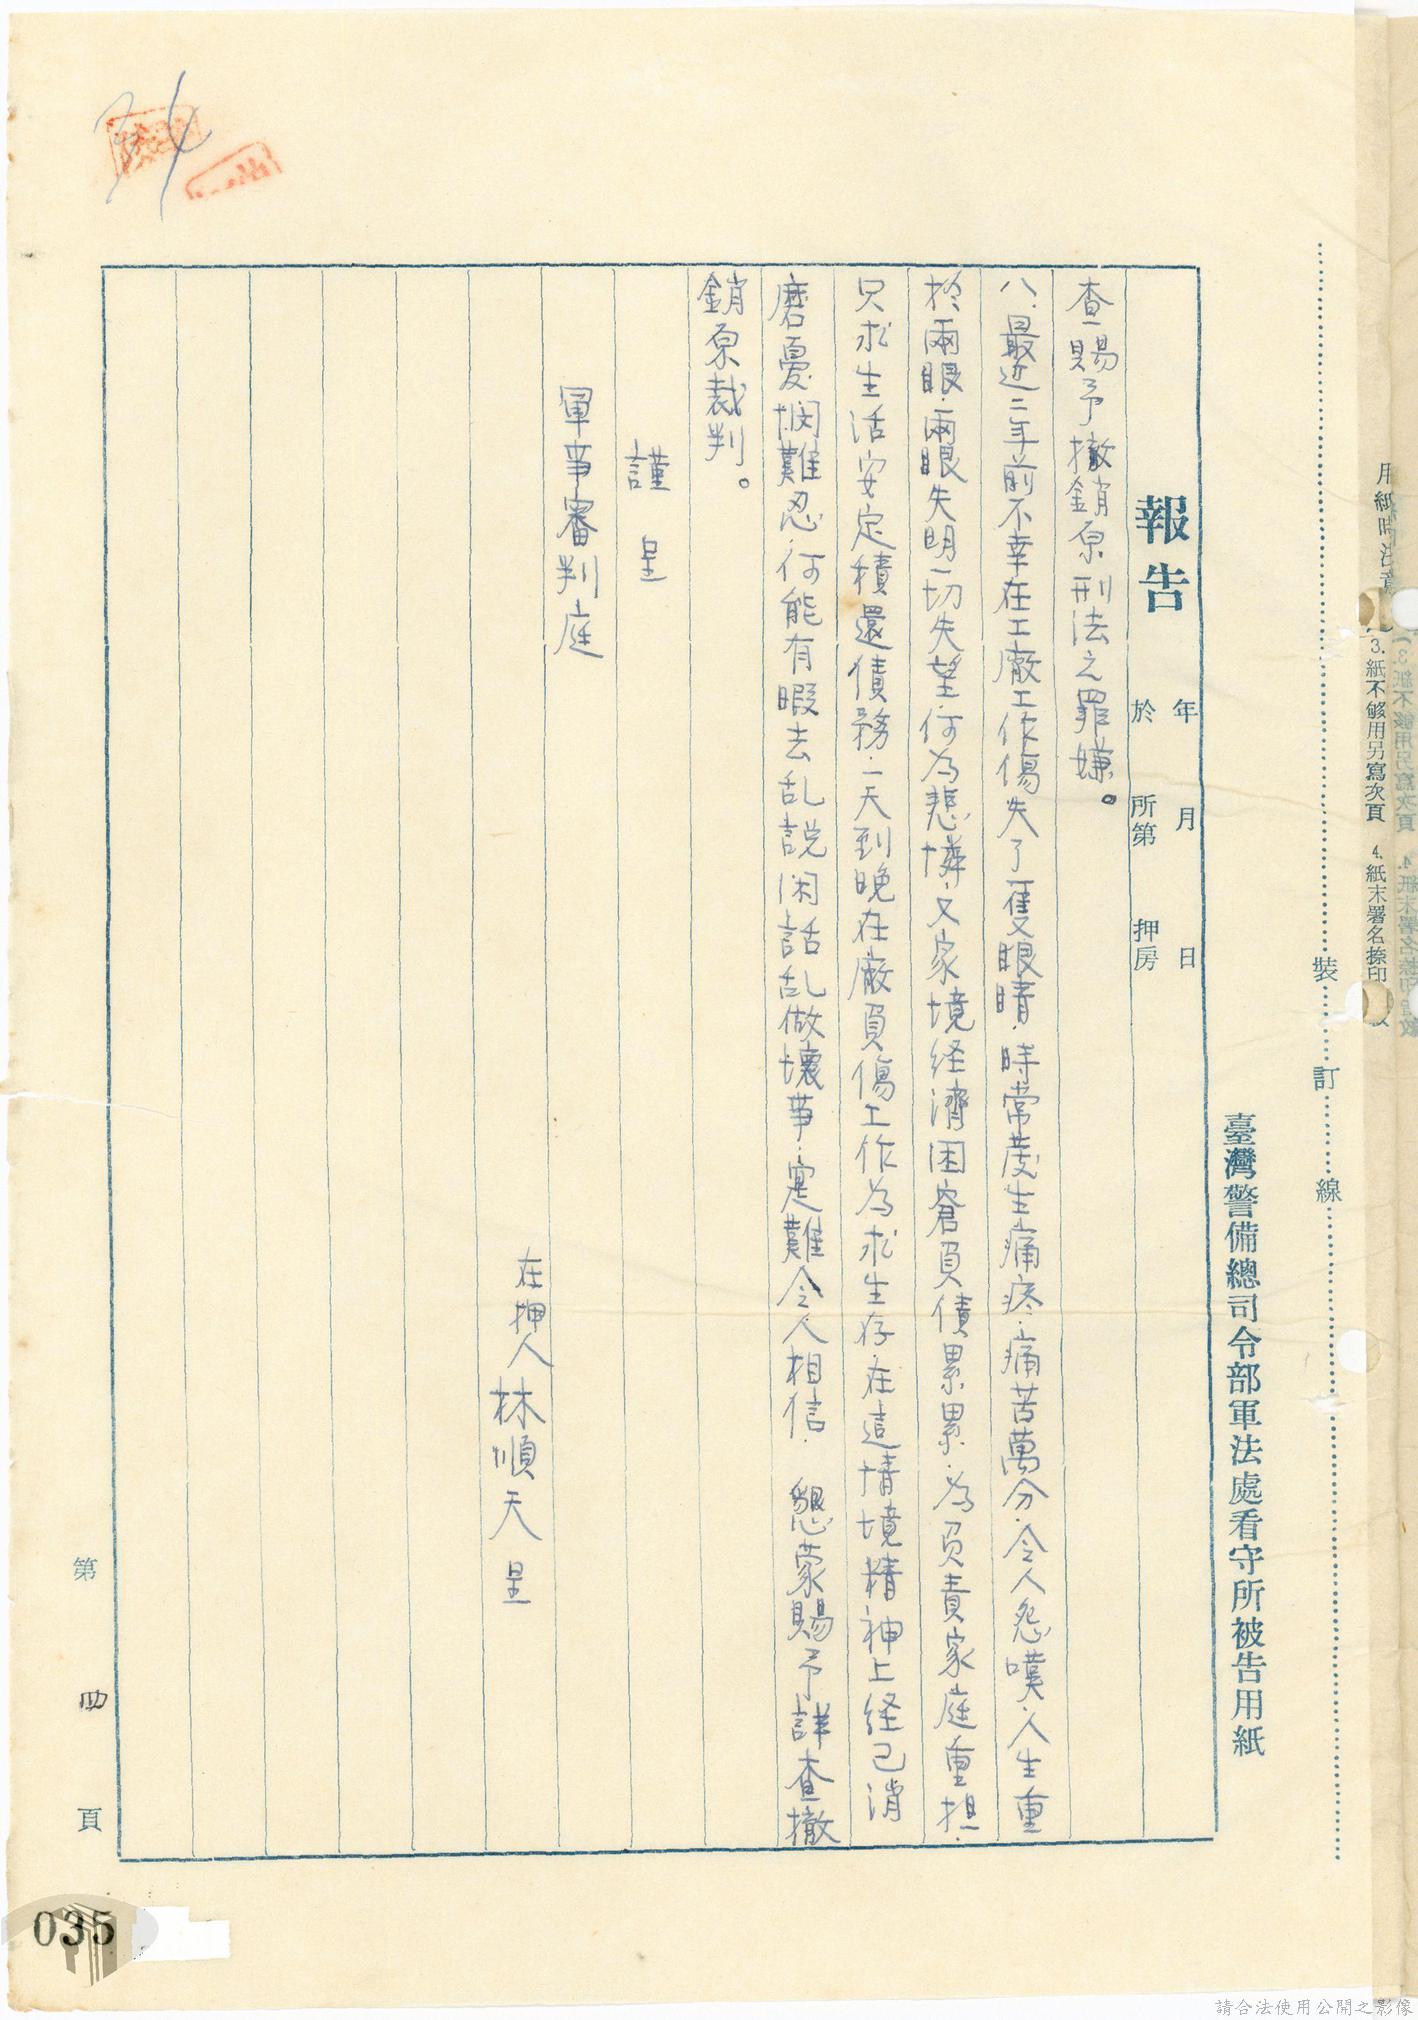 用紙時注意
3.紙不够用另寫次頁
4.紙末署名捺印
裝訂線
臺灣警備總司令部軍法處看守所被告用紙
報告
年 月 日
於 所第 押房
查賜予撤銷原刑法之罪嫌。
八.最近二年前不幸在工廠工作傷失了一隻眼睛.時常發生痛疼.痛苦萬分.令人怨嘆.人生重
於兩眼.兩眼失明一切失望.何為悲憐.又家境経濟困窘負債累累.為負責家庭重担.
只求生活安定積還債務.一天到晚在廠負傷工作為求生存.在這情境精神上経已消
磨憂悶難忍.何能有暇去乱說闲話乱做壞事.寔難令人相信. 懇蒙賜予詳查撤
銷原裁判。
謹呈
軍事審判庭
在押人 林順天 呈
第 四 頁
34
035
請合法使用公開之影像